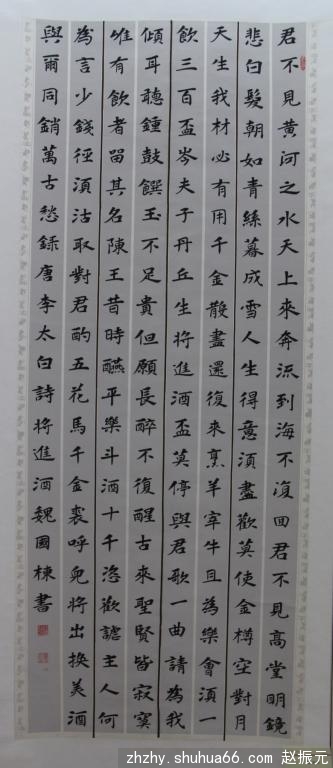 君不見黃河之水天上來奔流到海不復回君不見高堂明鏡
悲白髮朝如青絲暮成雪人生得意須盡歡莫使金樽空對月
天生我材必有用千金散盡還復來烹羊宰牛且為樂會須一
飲三百盃岑夫子丹丘生將進酒盃莫停與君歌一曲請為我
傾耳聽鍾鼓饌玉不足貴但願長醉不復醒古來聖賢皆寂寞
唯有飲者留其名陳王昔時醼平樂斗酒十千恣歡謔主人何
為言少錢徑須沽取對君酌五花馬千金裘呼兒將出換美酒
與爾同銷萬古愁錄唐李太白詩將進酒魏國棟書
zhzhy.shuhua66.com 赵振元